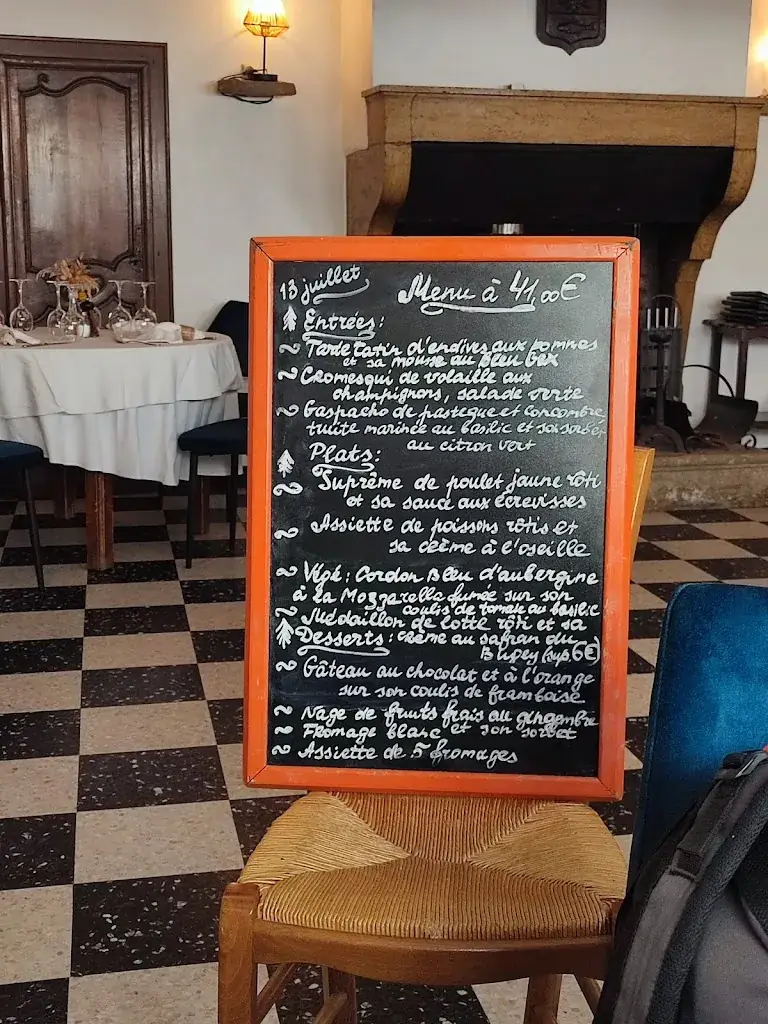 13 juillet
Menu à 41,00€
Entrées:
Tarte tatin d'endives aux pommes
et sa mousse au bleu Gex
Cromesqui de volaille aux
champignons, salade verte
Gaspacho de pastèque et concombre
truite marinée au basilic et son sorbet
au citron vert
Plats:
Suprême de poulet jaune rôti
et sa sauce aux écrevisses
Assiette de poissons rôtis et
sa crème à l'oseille
Végé: Cordon Bleu d'aubergine
à la Mozzarella fumée sur son
coulis de tomate au basilic
Médaillon de lotte rôti et sa
crème au safran du
Bugey (sup. 6€)
Desserts:
Gâteau au chocolat et à l'orange
sur son coulis de framboise
Nage de fruits frais au gingembre
et son sorbet
Fromage blanc
Assiette de 5 fromages